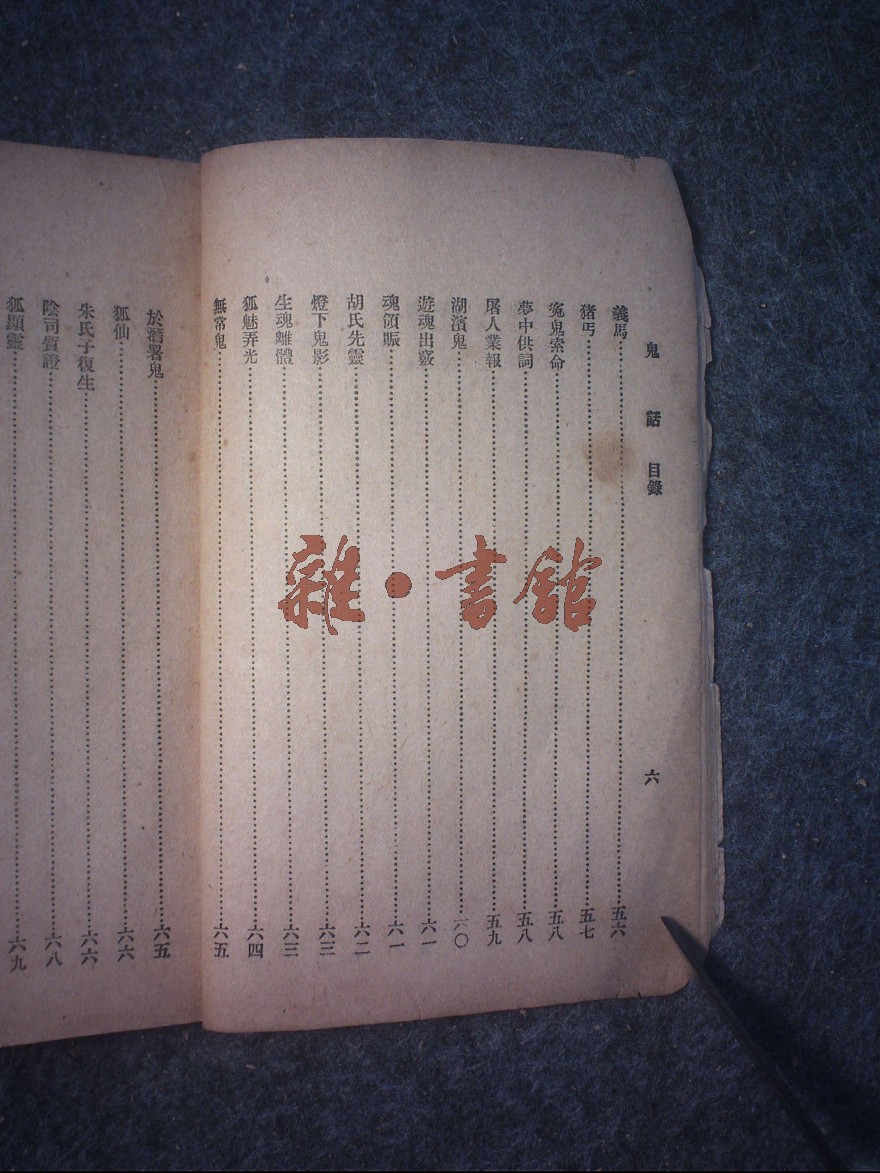 鬼話目錄 六
義馬……五六
猪丐……五七
寃鬼索命……五八
夢中供詞……五八
屠人業報……五九
湖濱鬼……六〇
遊魂出竅……六一
魂領賑……六一
胡氏先靈……六二
燈下鬼影……六三
生魂離體……六三
狐魅弄光……六四
無常鬼……六五
於潛署鬼……六五
狐仙……六六
朱氏子復生……六六
陰司質證……六八
狐顯靈……六九
雜·書館